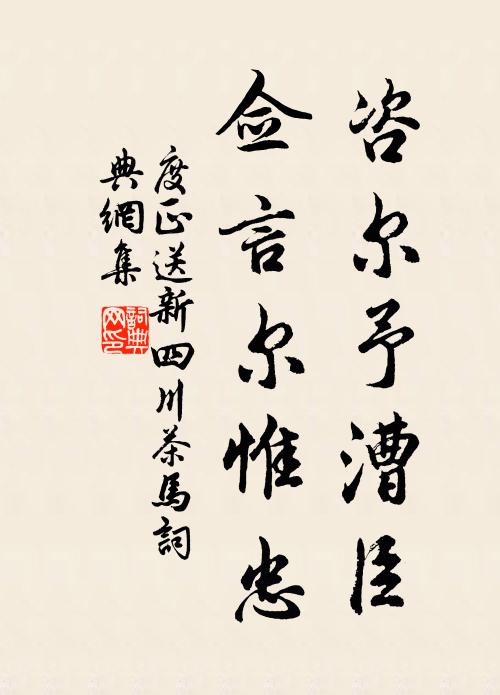 咨尔予漕臣
佥言尔惟忠
度正送新四川茶馬詞
典網集
詞典
网印